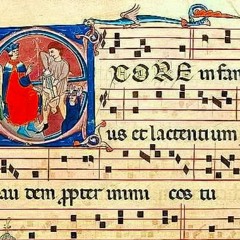 EXORE infan
us et lactentium
au dem ꝓpter inimi cos tu